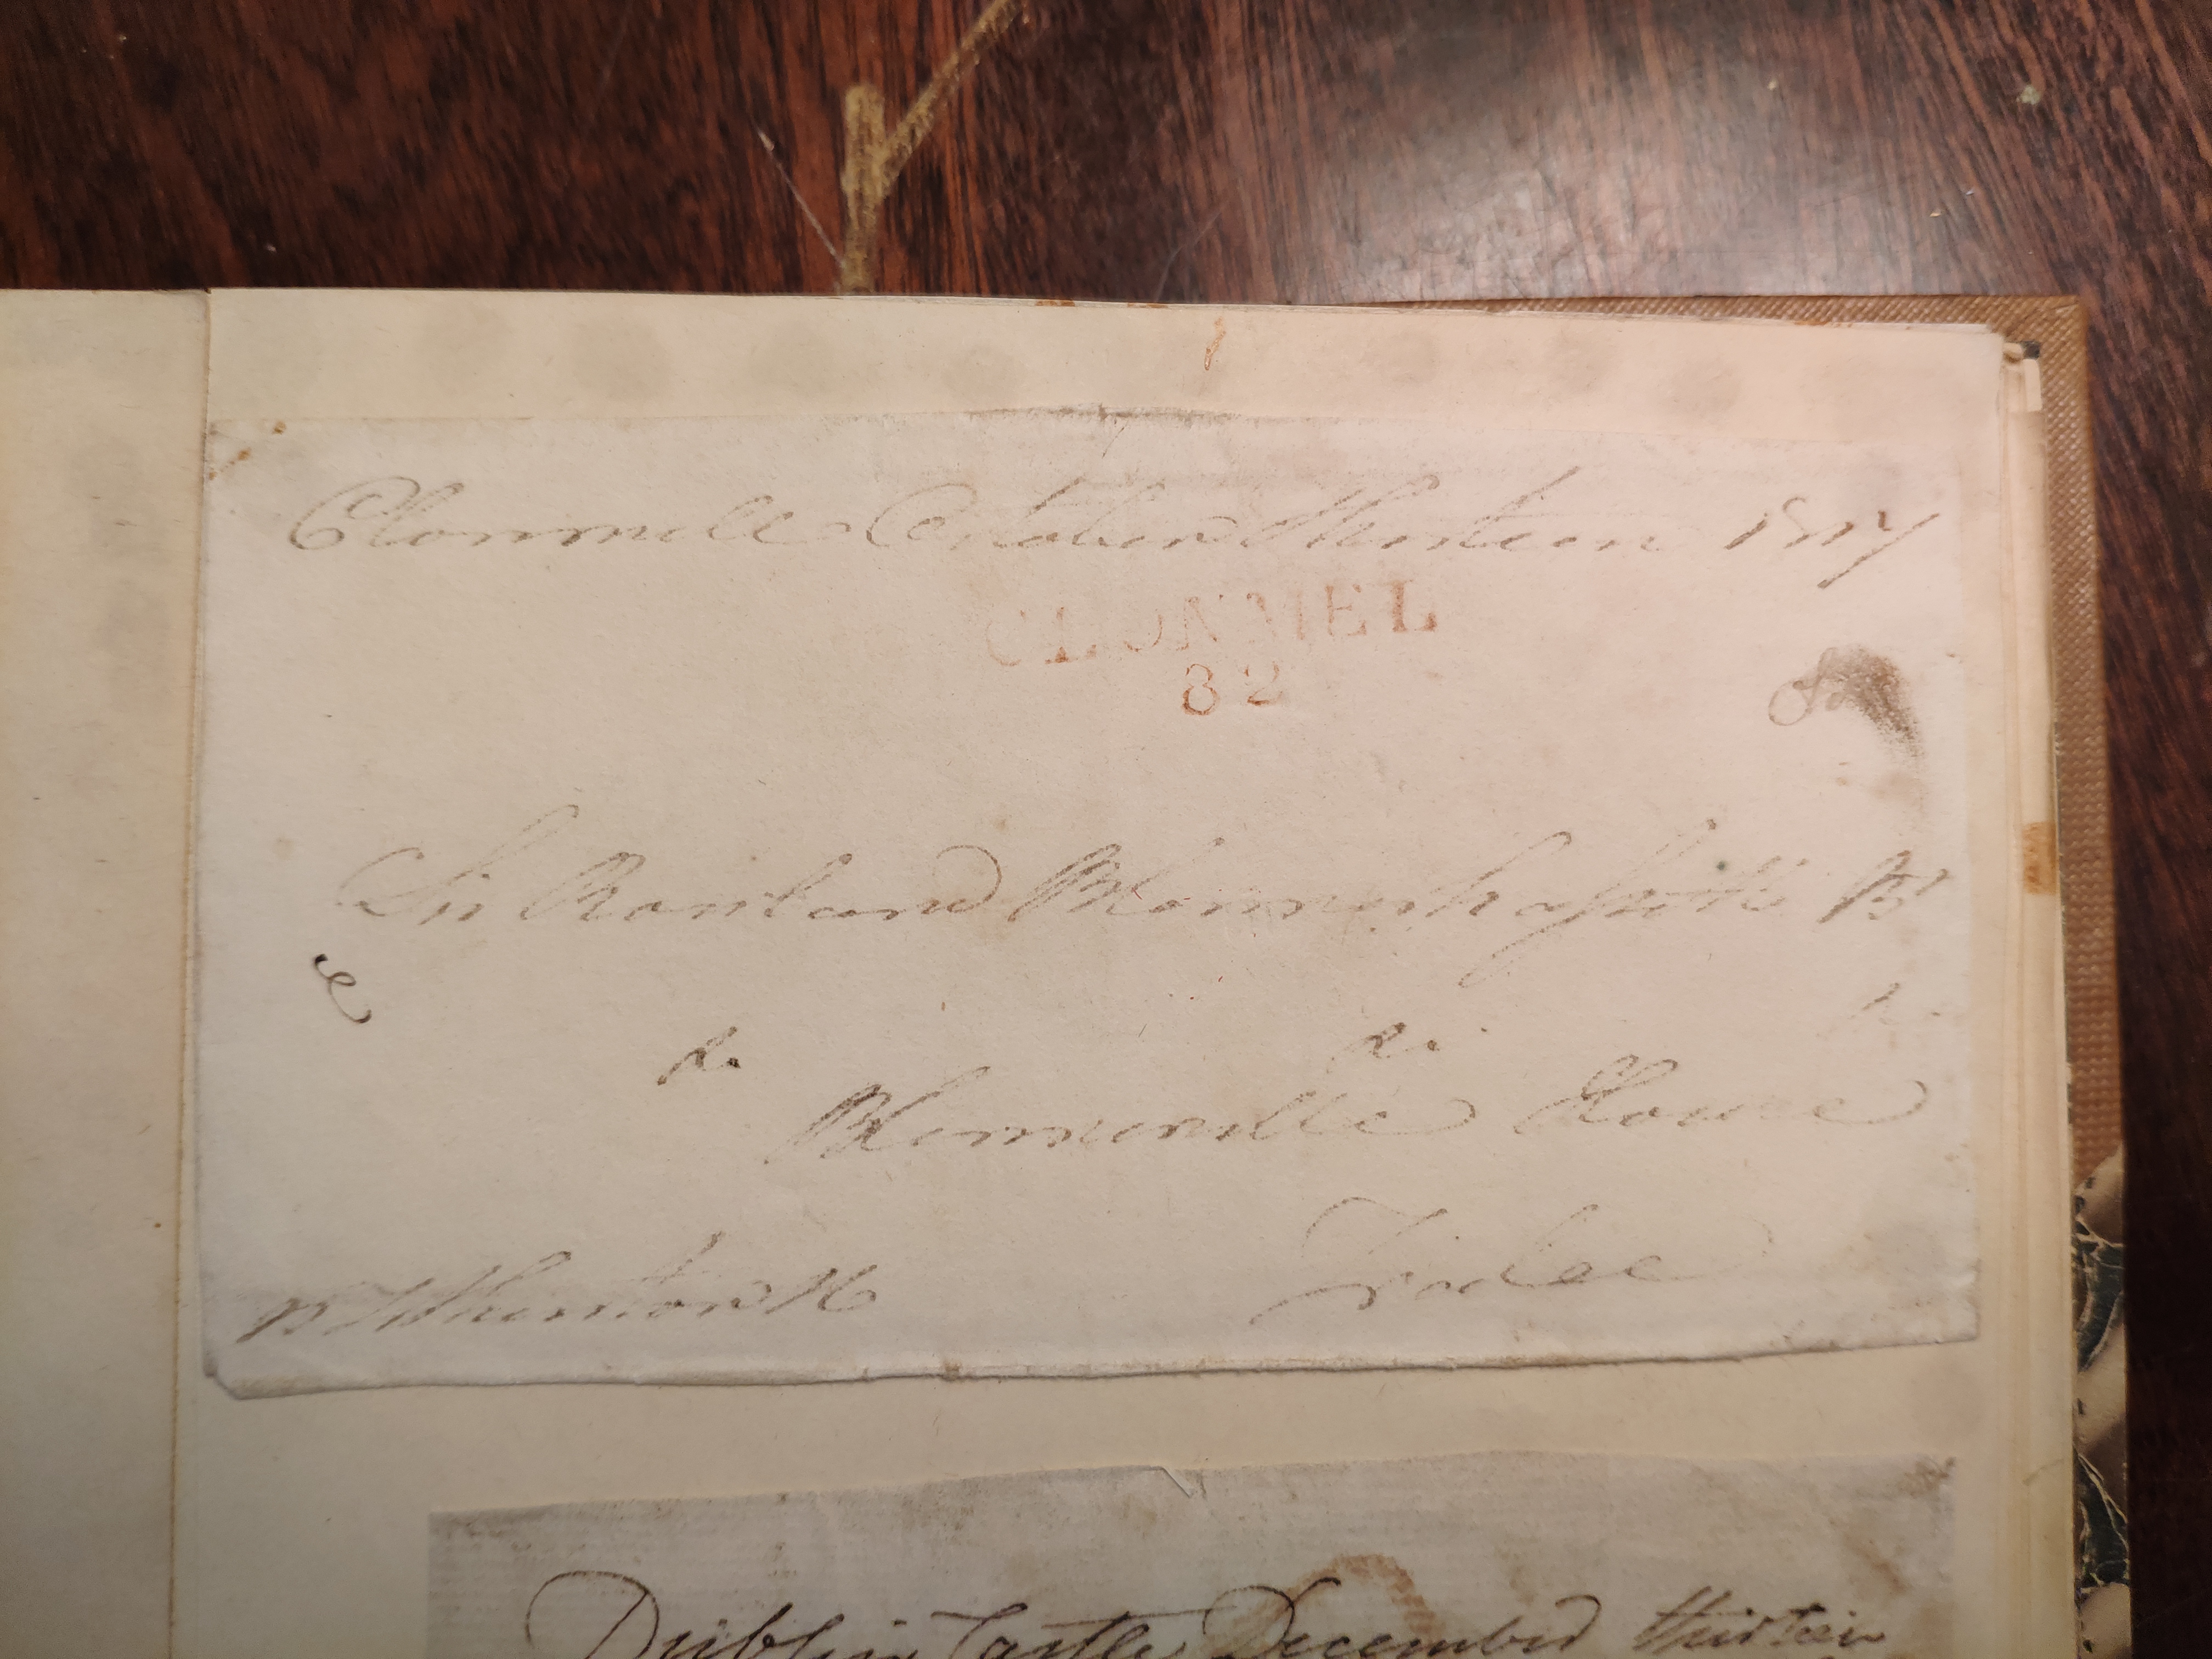 Clonmell October thirteen 1817
CLONMEL
82
Sir Rowland Blennerhassett Bt
Blennerville House
Tralee
Dublin Castle December thirteen